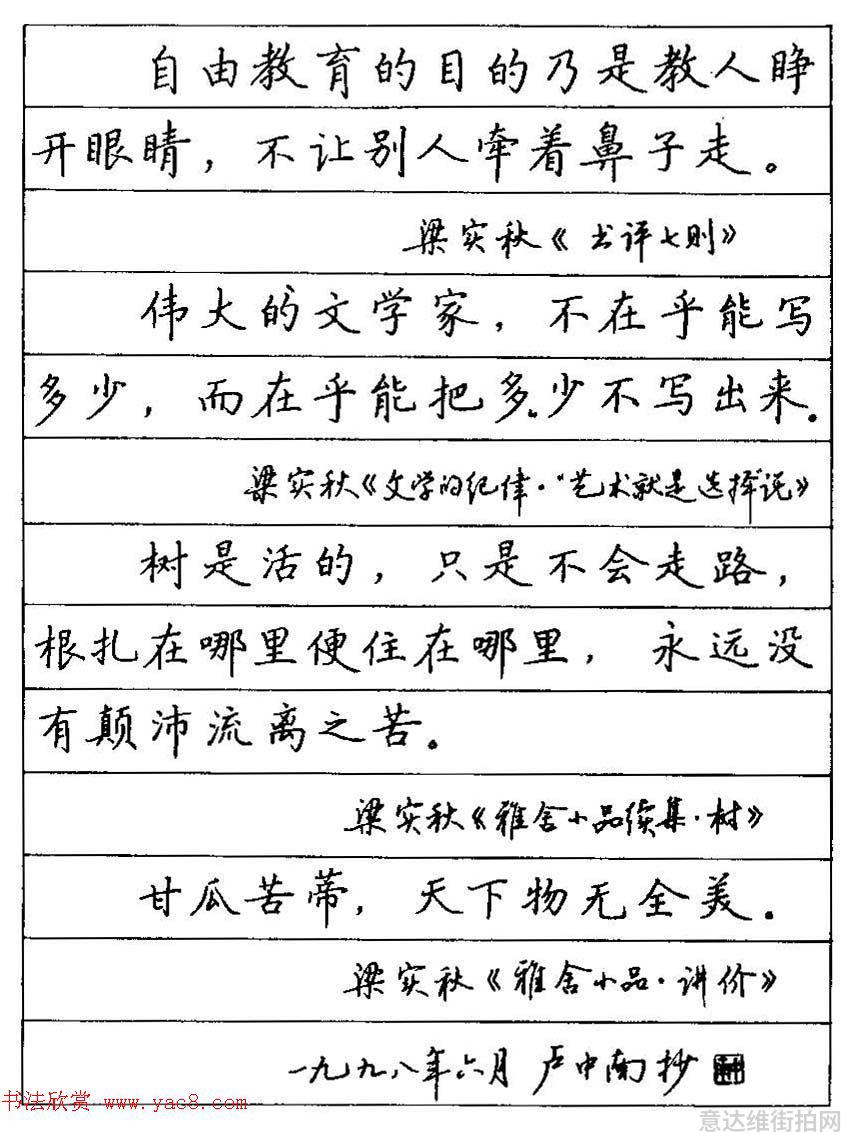 自由教育的目的乃是教人睁
开眼睛，不让别人牵着鼻子走。
梁实秋《书评七则》
伟大的文学家，不在乎能写
多少，而在乎能把多少不写出来。
梁实秋《文学的纪律·“艺术就是选择”说》
树是活的，只是不会走路，
根扎在哪里便住在哪里，永远没
有颠沛流离之苦。
梁实秋《雅舍小品续集·树》
甘瓜苦蒂，天下物无全美。
梁实秋《雅舍小品·讲价》
一九九八年六月 卢中南抄
书法欣赏 www.yac8.com
意达维街拍网